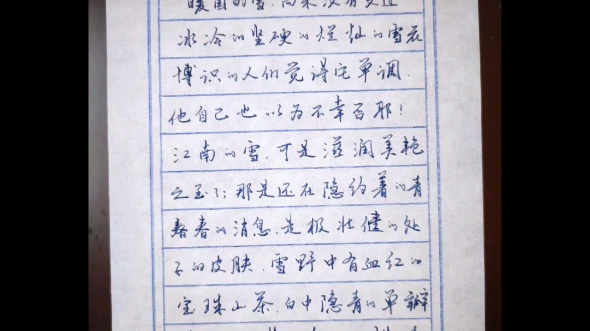 暖国的雪,向来没有变过
冰冷的坚硬的烂灿的雪花
博识的人们觉得它单调.
他自己也以为不幸否耶!
江南的雪.可是滋润美艳
之至了;那是还在隐约着的青
春的消息.是极壮健的处
子的皮肤.雪野中有血红的
宝珠山茶.白中隐青的单瓣